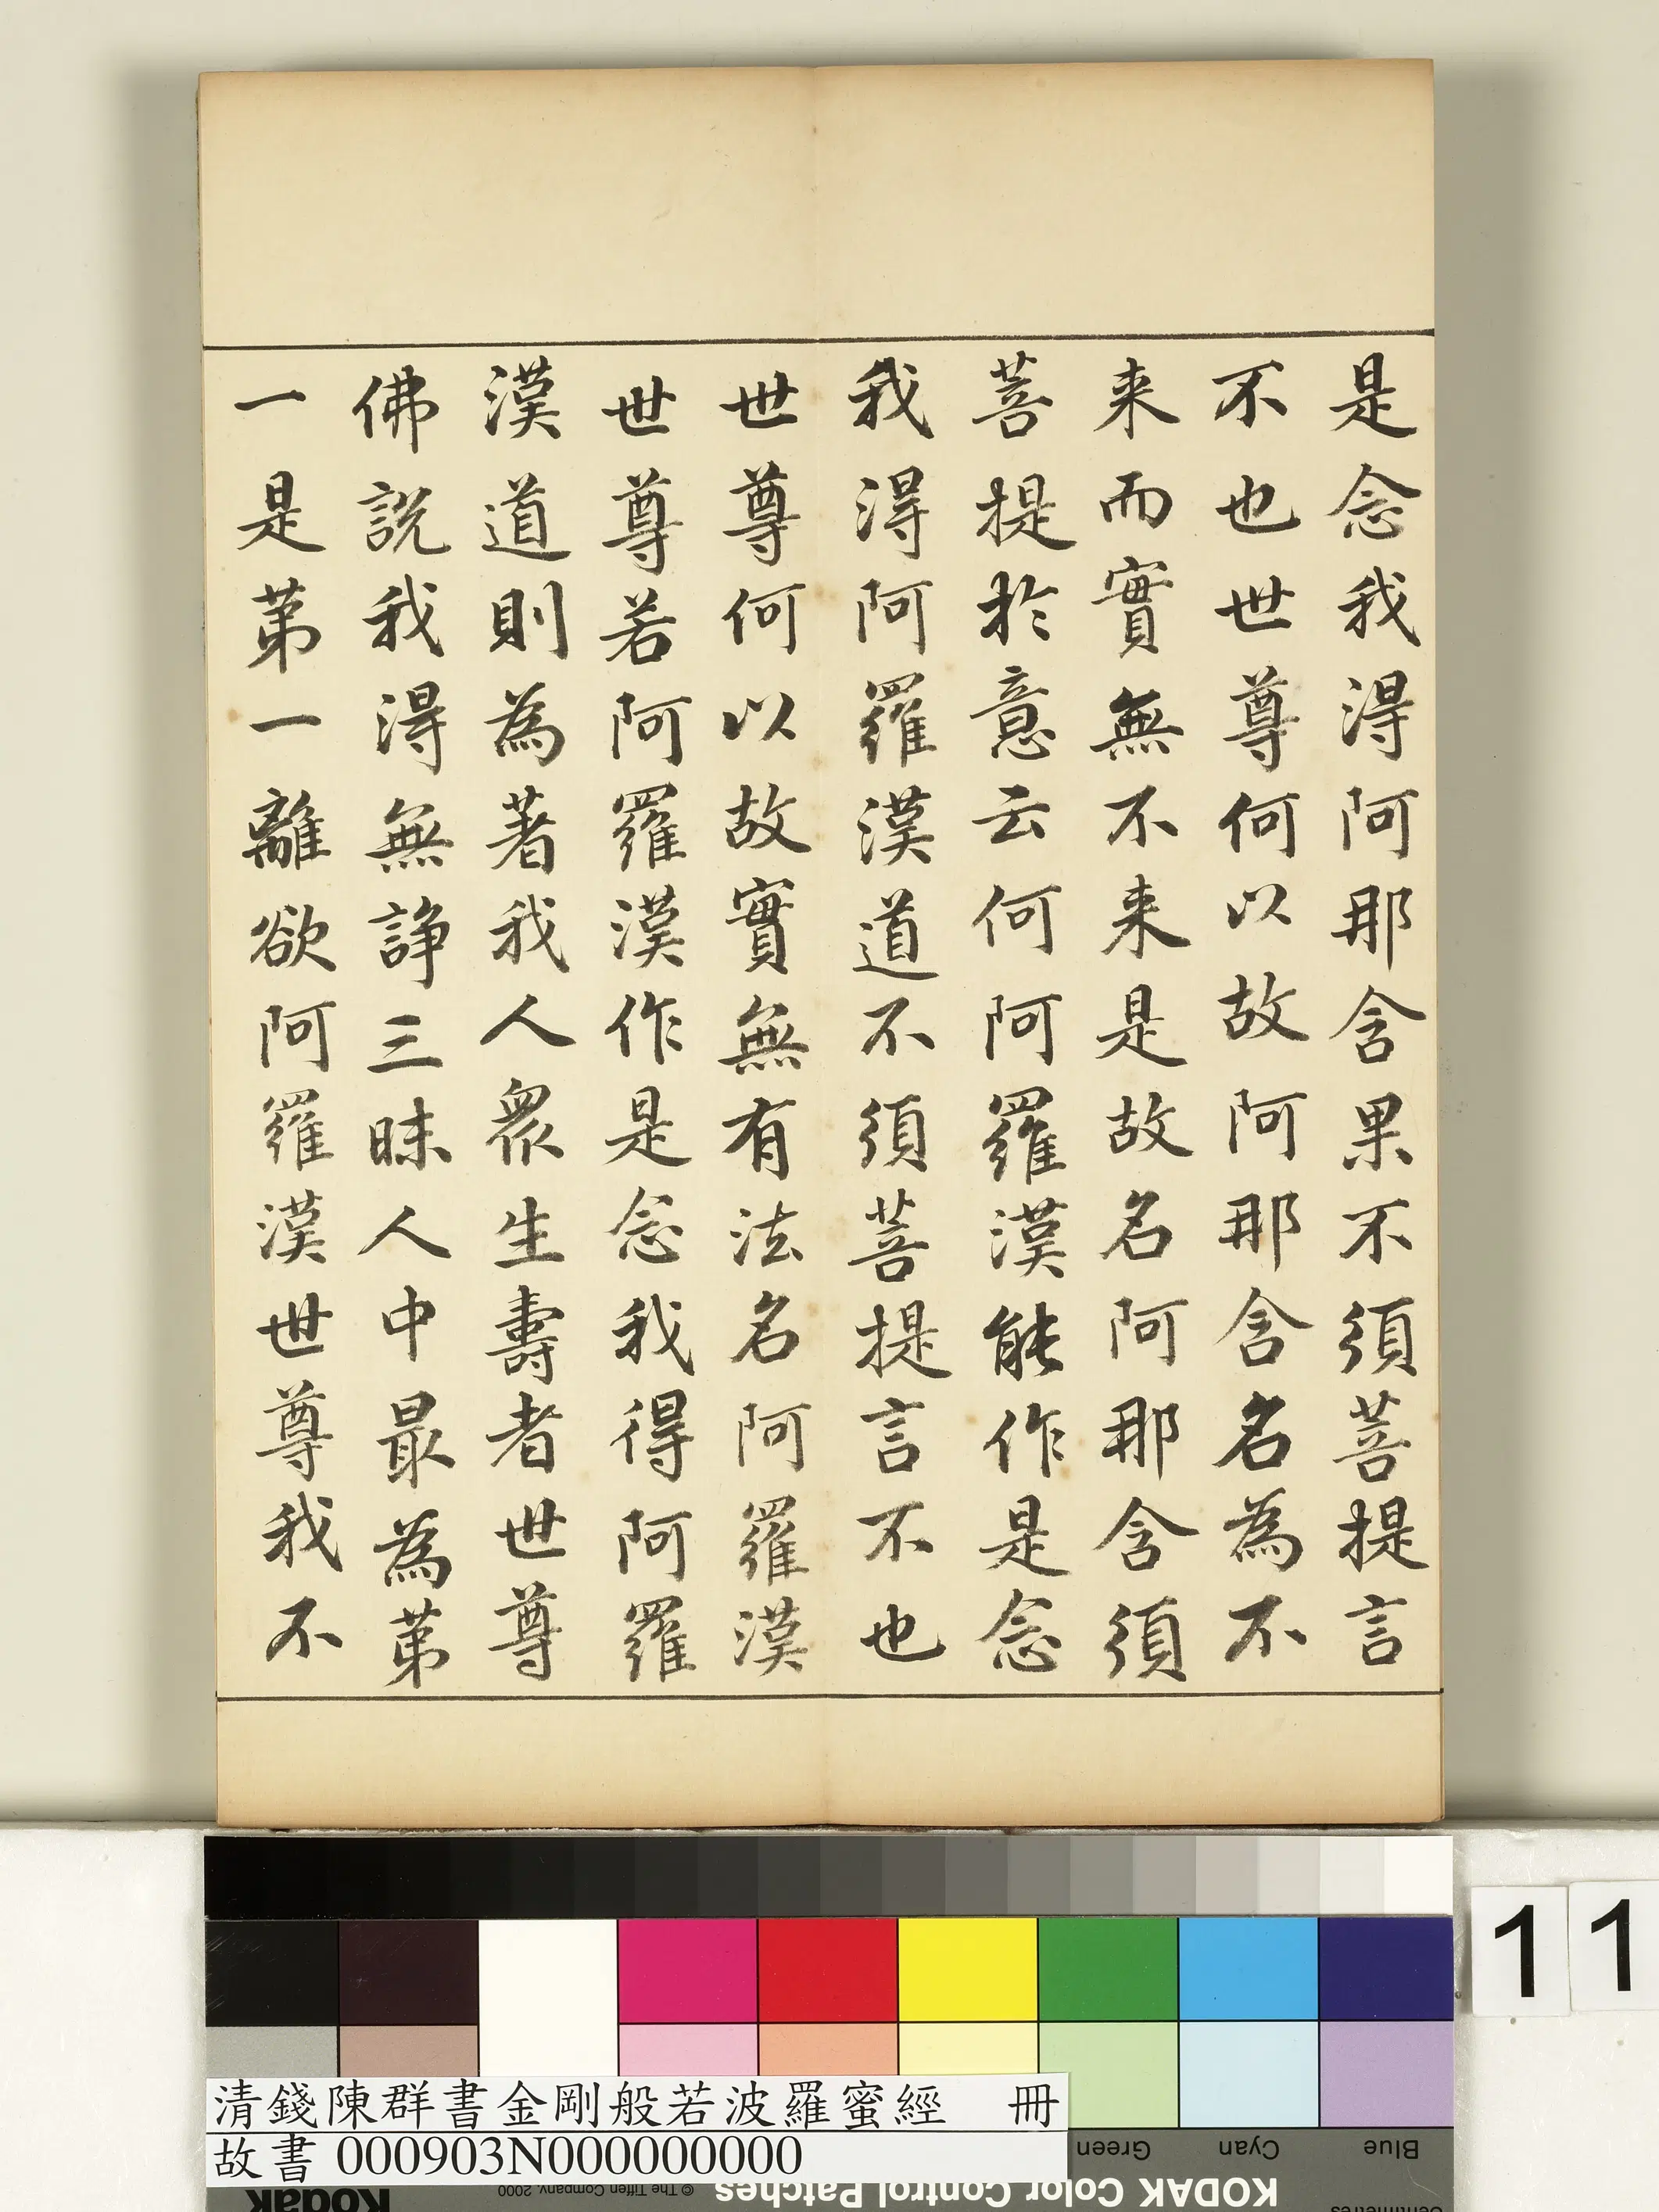 是念我得阿那含果不須菩提言
不也世尊何以故阿那含名為不
来而實無不来是故名阿那含須
菩提於意云何阿羅漢能作是念
我得阿羅漢道不須菩提言不也
世尊何以故實無有法名阿羅漢
世尊若阿羅漢作是念我得阿羅
漢道則為著我人衆生壽者世尊
佛說我得無諍三昧人中最為第
一是第一離欲阿羅漢世尊我不
11
清錢陳群書金剛般若波羅蜜經 冊
故書 000903N000000000
Green Cyan Blue
Kodak © The Tiffen Company, 2000 KODAK Color Control Patches